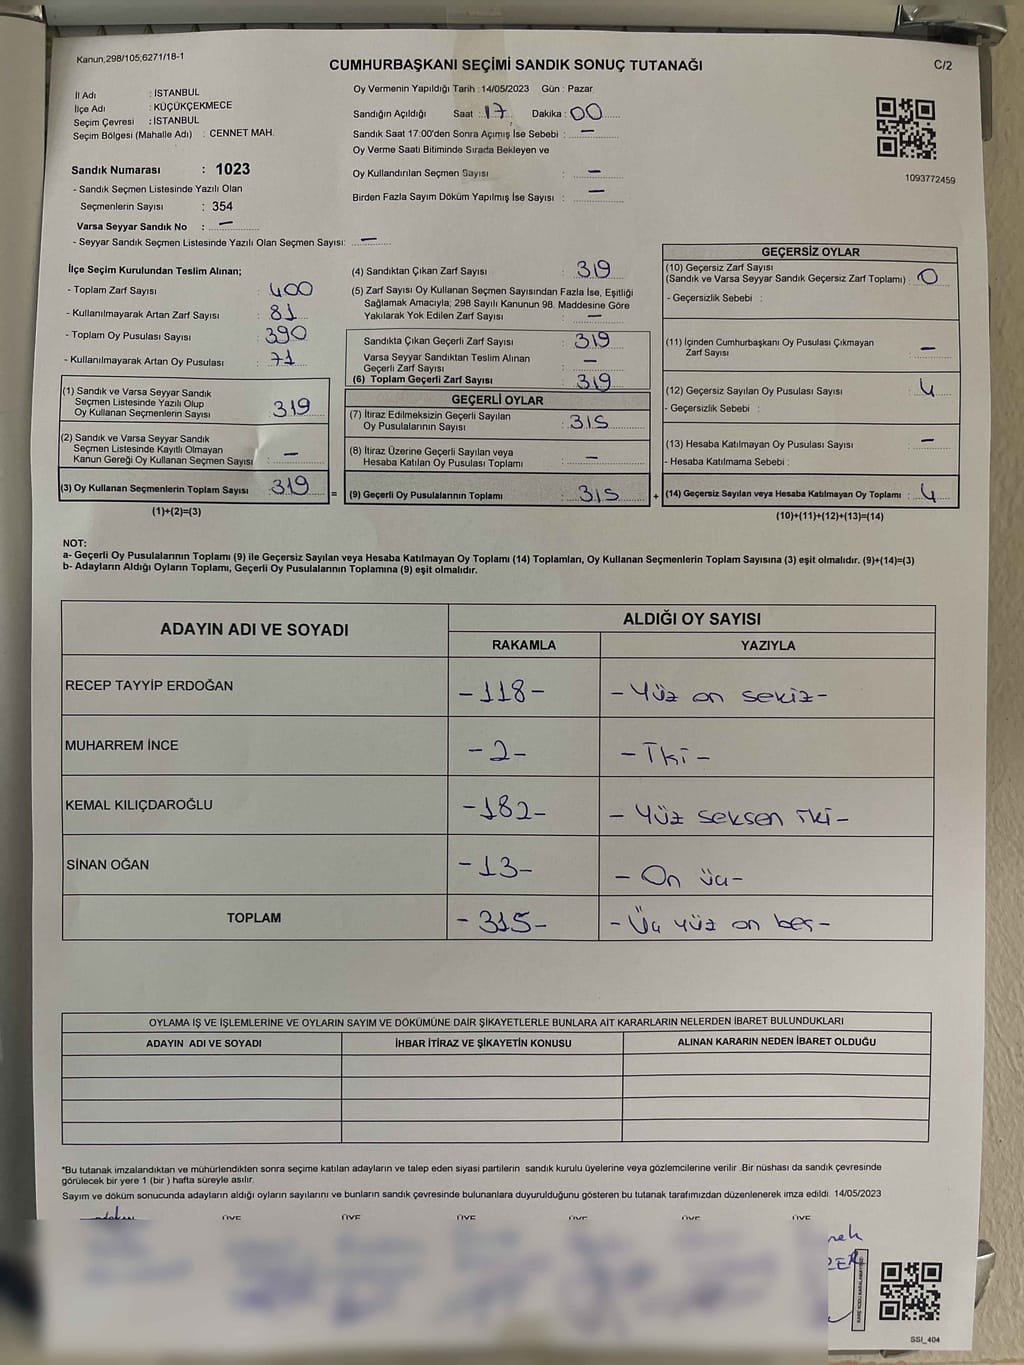 Kanun;298/105;6271/18-1
CUMHURBAŞKANI SEÇİMİ SANDIK SONUÇ TUTANAĞI
C/2
İl Adı : İSTANBUL
İlçe Adı : KÜÇÜKÇEKMECE
Seçim Çevresi : İSTANBUL
Seçim Bölgesi (Mahalle Adı) : CENNET MAH.
Oy Vermenin Yapıldığı Tarih : 14/05/2023 Gün : Pazar
Sandığın Açıldığı Saat : 17 Dakika : 00
Sandık Saat 17:00'den Sonra Açımış İse Sebebi : —
Oy Verme Saati Bitiminde Sırada Bekleyen ve
Oy Kullandırılan Seçmen Sayısı : —
Birden Fazla Sayım Döküm Yapılmış İse Sayısı : —
1093772459
Sandık Numarası : 1023
- Sandık Seçmen Listesinde Yazılı Olan
Seçmenlerin Sayısı : 354
Varsa Seyyar Sandık No : —
- Seyyar Sandık Seçmen Listesinde Yazılı Olan Seçmen Sayısı: —
İlçe Seçim Kurulundan Teslim Alınan;
- Toplam Zarf Sayısı : 400
- Kullanılmayarak Artan Zarf Sayısı : 81
- Toplam Oy Pusulası Sayısı : 390
- Kullanılmayarak Artan Oy Pusulası : 71
(1) Sandık ve Varsa Seyyar Sandık
Seçmen Listesinde Yazılı Olup
Oy Kullanan Seçmenlerin Sayısı : 319
(2) Sandık ve Varsa Seyyar Sandık
Seçmen Listesinde Kayıtlı Olmayan
Kanun Gereği Oy Kullanan Seçmen Sayısı : —
(3) Oy Kullanan Seçmenlerin Toplam Sayısı : 319 =
(1)+(2)=(3)
(4) Sandıktan Çıkan Zarf Sayısı : 319
(5) Zarf Sayısı Oy Kullanan Seçmen Sayısından Fazla İse, Eşitliği
Sağlamak Amacıyla; 298 Sayılı Kanunun 98. Maddesine Göre
Yakılarak Yok Edilen Zarf Sayısı : —
Sandıkta Çıkan Geçerli Zarf Sayısı : 319
Varsa Seyyar Sandıktan Teslim Alınan
Geçerli Zarf Sayısı : —
(6) Toplam Geçerli Zarf Sayısı : 319
GEÇERLİ OYLAR
(7) İtiraz Edilmeksizin Geçerli Sayılan
Oy Pusulalarının Sayısı : 315
(8) İtiraz Üzerine Geçerli Sayılan veya
Hesaba Katılan Oy Pusulası Toplamı : —
(9) Geçerli Oy Pusulalarının Toplamı : 315 +
GEÇERSİZ OYLAR
(10) Geçersiz Zarf Sayısı
(Sandık ve Varsa Seyyar Sandık Geçersiz Zarf Toplamı) : 0
- Geçersizlik Sebebi :
(11) İçinden Cumhurbaşkanı Oy Pusulası Çıkmayan
Zarf Sayısı : —
(12) Geçersiz Sayılan Oy Pusulası Sayısı : 4
- Geçersizlik Sebebi :
(13) Hesaba Katılmayan Oy Pusulası Sayısı : —
- Hesaba Katılmama Sebebi :
(14) Geçersiz Sayılan veya Hesaba Katılmayan Oy Toplamı : 4
(10)+(11)+(12)+(13)=(14)
NOT:
a- Geçerli Oy Pusulalarının Toplamı (9) ile Geçersiz Sayılan veya Hesaba Katılmayan Oy Toplamı (14) Toplamları, Oy Kullanan Seçmenlerin Toplam Sayısına (3) eşit olmalıdır. (9)+(14)=(3)
b- Adayların Aldığı Oyların Toplamı, Geçerli Oy Pusulalarının Toplamına (9) eşit olmalıdır.
ADAYIN ADI VE SOYADI
ALDIĞI OY SAYISI
RAKAMLA YAZIYLA
RECEP TAYYİP ERDOĞAN -118- -Yüz on sekiz-
MUHARREM İNCE -2- -İki-
KEMAL KILIÇDAROĞLU -182- -Yüz seksen iki-
SİNAN OĞAN -13- -On üç-
TOPLAM -315- -Üç yüz on beş-
OYLAMA İŞ VE İŞLEMLERİNE VE OYLARIN SAYIM VE DÖKÜMÜNE DAİR ŞİKAYETLERLE BUNLARA AİT KARARLARIN NELERDEN İBARET BULUNDUKLARI
ADAYIN ADI VE SOYADI İHBAR İTİRAZ VE ŞİKAYETİN KONUSU ALINAN KARARIN NEDEN İBARET OLDUĞU
*Bu tutanak imzalandıktan ve mühürlendikten sonra seçime katılan adayların ve talep eden siyasi partilerin sandık kurulu üyelerine veya gözlemcilerine verilir .Bir nüshası da sandık çevresinde
görülecek bir yere 1 (bir ) hafta süreyle asılır.
Sayım ve döküm sonucunda adayların aldığı oyların sayılarını ve bunların sandık çevresinde bulunanlara duyurulduğunu gösteren bu tutanak tarafımızdan düzenlenerek imza edildi. 14/05/2023
ÜYE ÜYE ÜYE ÜYE ÜYE ÜYE
SSI_404